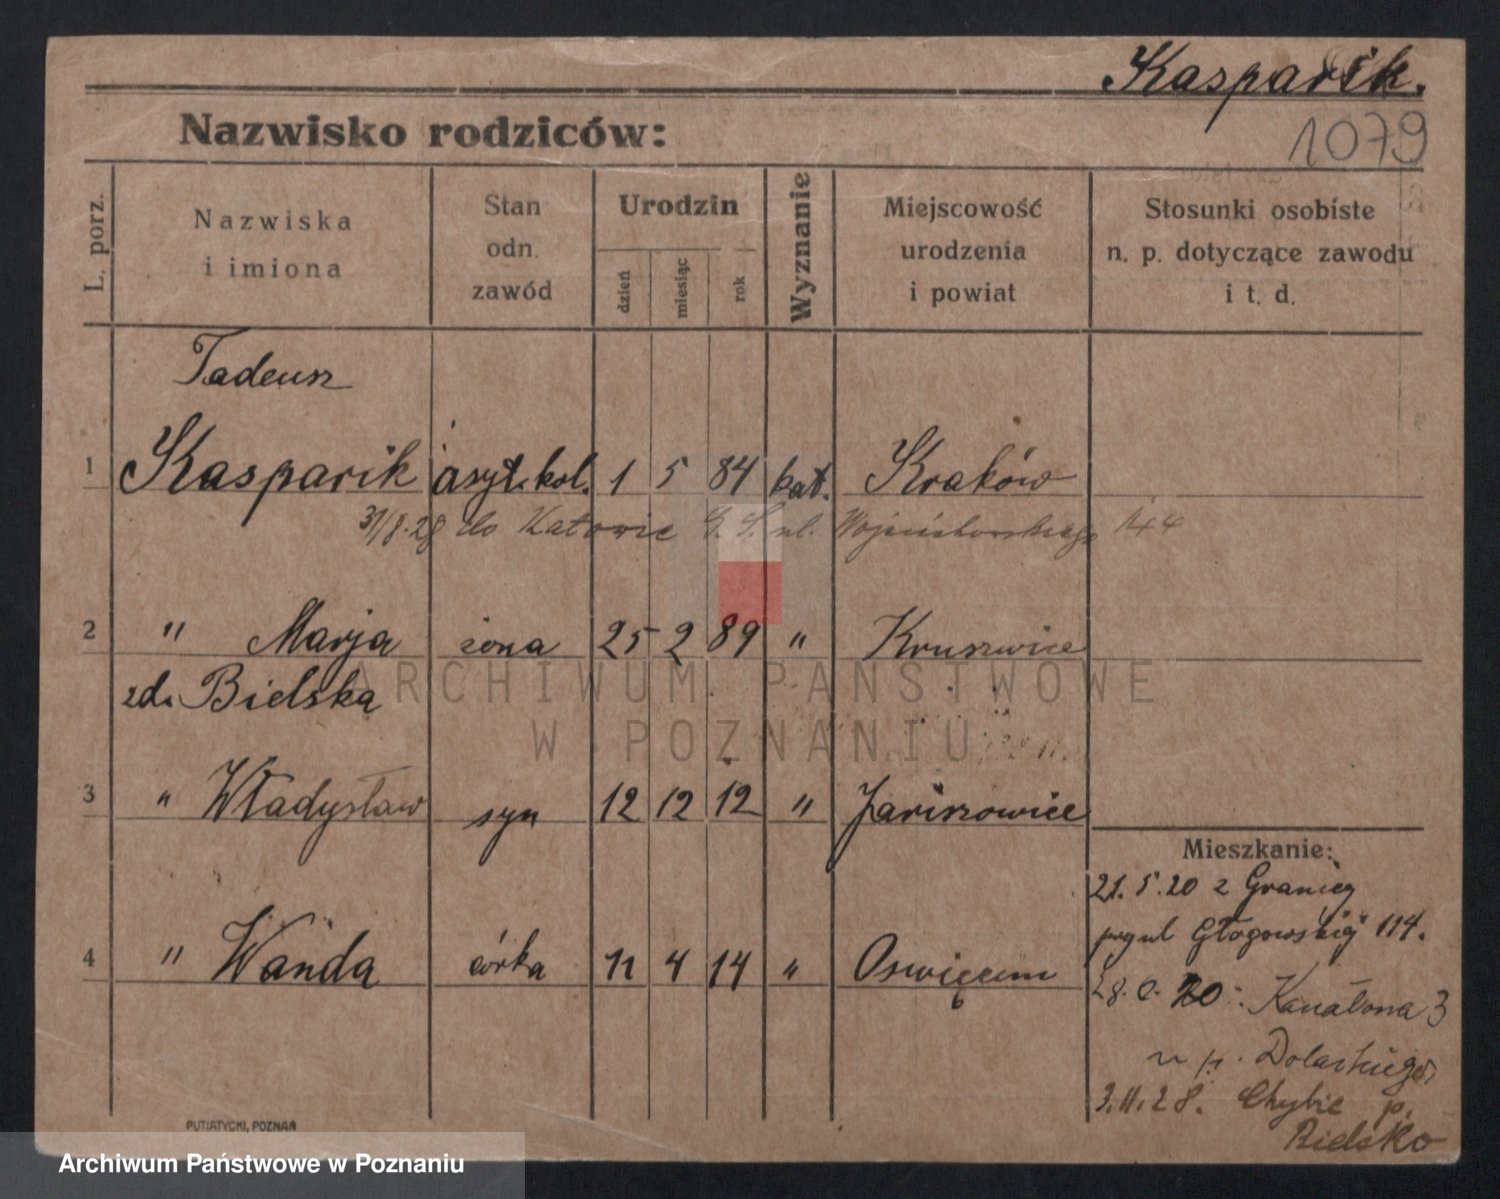 Kasparik.
1079
Nazwisko rodziców:
L. porz.
Nazwiska i imiona
Stan odn. zawód
Urodzin
dzień
miesiąc
rok
Wyznanie
Miejscowość urodzenia i powiat
Stosunki osobiste n. p. dotyczące zawodu i t. d.
Tadeusz
1 Kasparik asyt. kol. 1 5 84 kat. Kraków
31/8.28 do Katowic G. S. ul. 144
2 " Marja żona 25 2 89 " Kruszwice
zd. Bielska
3 " Władysław syn 12 12 12 " Jariszowice
4 " Wanda córka 11 4 14 " Oswięcim
Mieszkanie:
21.5.20 z Granicy
Głogowskiej 114.
20 Kanałowa 3
u p.
3.11.28. Chybie p.
Bielsko
PUTIATYCKI, POZNAŃ
ARCHIWUM PAŃSTWOWE
W POZNANIU
Archiwum Państwowe w Poznaniu